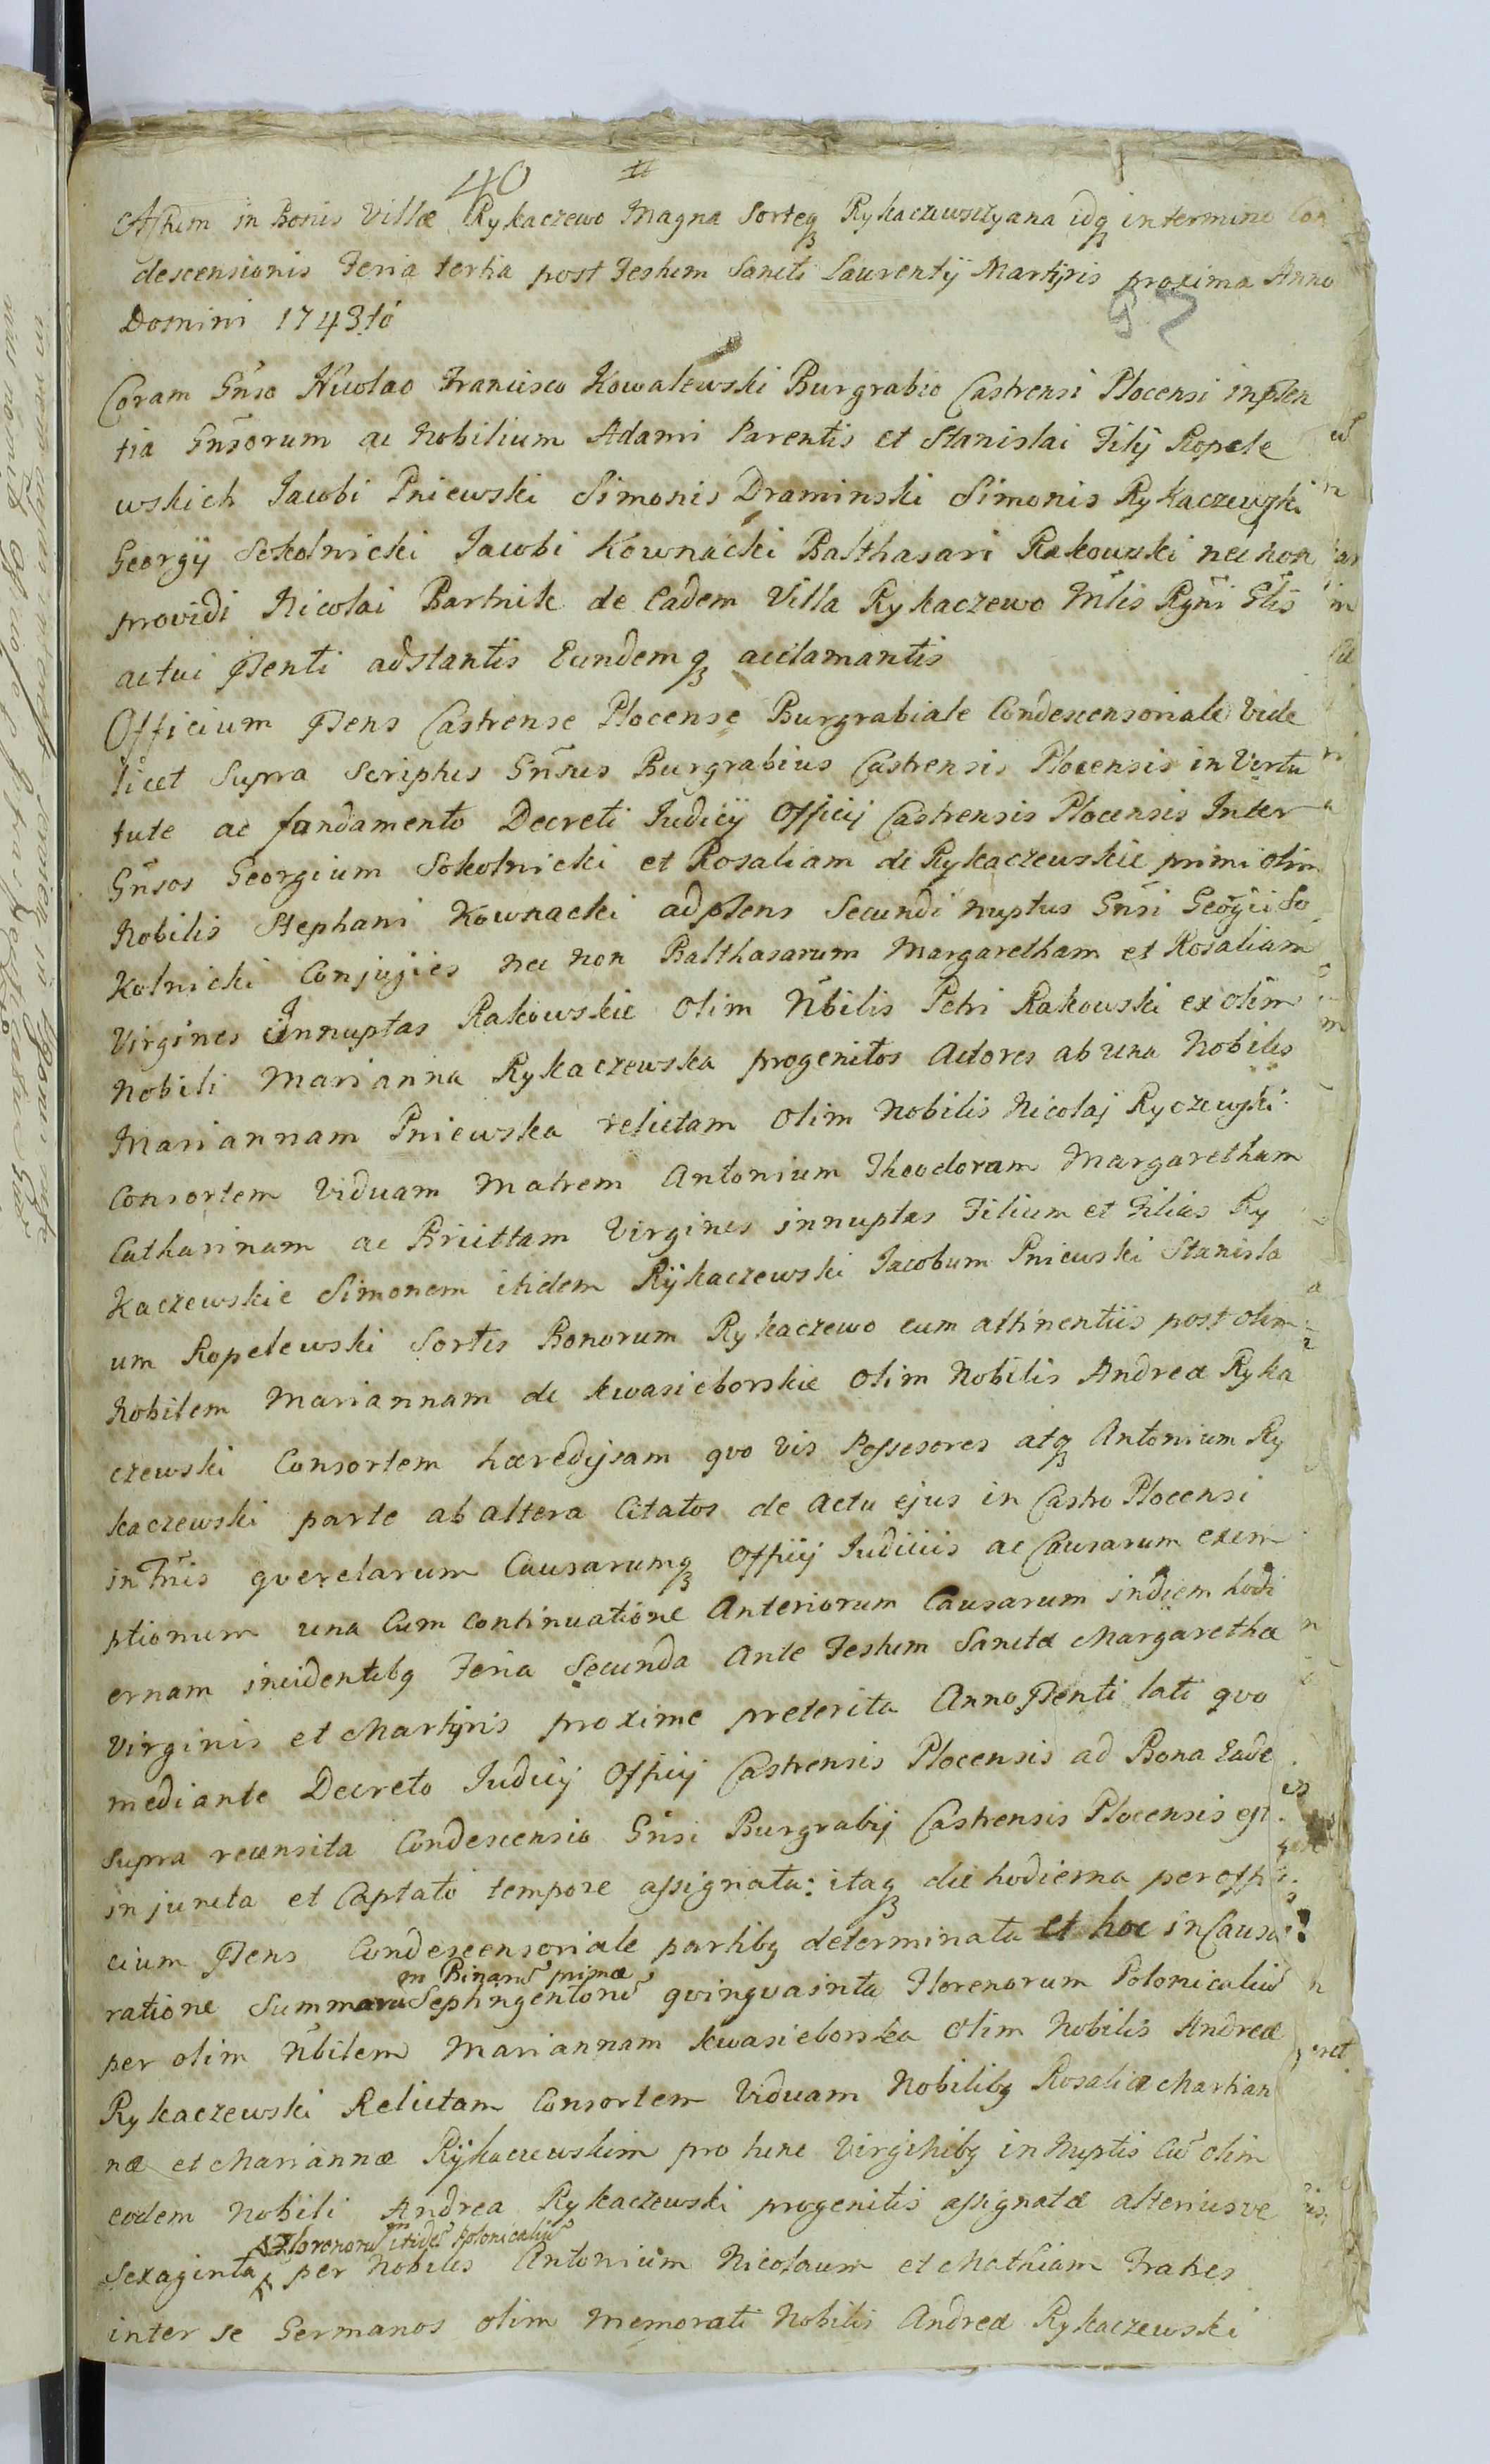 40 #
Actum in Bonis Villæ Rykaczewo Magna Sorteq Rykaczewsczyana idq in termino Con
descensionis Feria tertia post Festum Sancti Laurentij Martijris proxima Anno
Domini 1743tó
97
Coram Gnso Nicolao Francisco Kowalewski Burgrabio Castrensi Plocensi in pñsen
tia Gnsorum ac Nobilium Adami Parentis et Stanislai Filij Ropele
wskich Jacobi Pniewski Simonis Draminski Simonis Rykaczewski
Georgij Sokolnicki Jacobi Kownacki Balthasari Rakowski nec non
providi Nicolai Bartnik de Eadem Villa Rykaczewo Mlis Rgni Glis
actui pñsenti adstantis Eundemq acclamantis
Officium pñsens Castrense Plocense Burgrabiale Condescensoriale Vide
licet Supra Scriptus Gnsus Burgrabius Castrensis Plocensis in Vertu
tute ac fundamento Decreti Judicij Officij Castrensis Plocensis Inter
Gnsos Georgium Sokolnicki et Rosaliam de Rykaczewskie primi olim
Nobilis Stephani Kownacki ad pñsens Secundi nuptus Gnsi Georgii So
kolnicki Conjugies nec non Balthasarum Margaretham et Rosaliam
Virgines Innuptas Rakowskie olim Nbilis Petri Rakowski ex olim
Nobili Marianna Rykaczewska progenitos Actores ab una Nobiles
Mariannam Pniewska relictam olim Nobilis Nicolaj Ryczewski
Consortem Viduam Matrem Antonium Theodoram Margaretham
Catharinam ac Briittam Virgines innuptas Filium et Filias Ry
kaczewskie Simonem itidem Rÿkaczewski Jacobum Pniewski Stanisla
um Ropelewski Sortis Bonorum Rykaczewo cum attinentiis post olim
Nobilem Mariannam de kwasieborskie olim Nobilis Andreæ Ryka
czewski Consortem hæredijsam quo vis Possesores atq Antonium Ry
kaczewski parte ab altera Citatos de Actu ejus in Castro Plocensi
in Tnis querelarum Causarumq Officij Judiciis ac Causarum exem
ptionum una Cum continuatione Anteriorum Causarum in diem hodi
ernam incidentibq Feria Secunda Ante Festum Sanctæ Margarethæ
Virginis et Martijris proxime preterita Anno pñsenti lati quo
mediante Decreto Judicij Officij Castrensis Plocensis ad Bona Eade
supra recensita Condescensio Gnsi Burgrabij Castrensis Plocensis est
injuncta et Captato tempore assignata: itaq die hodierna per offi
cium pñsens Condescensoriale partibq determinata et hoc in Causa
m Binarũ primæ
ratione Summaru Septingentorũ quinquainta Florenorum Polonicaliũ
per olim Nbilem Mariannam kwasieborska olim Nobilis Andreæ
Rykaczewski Relictam Consortem Viduam Nobilibq Rosaliæ Marian
næ et Mariannæ Rÿkaczewskim pro tunc Virginibq innuptis Cũ olim
eodem Nobili Andrea Rykaczewski progenitis assignatæ alteriusve
Florenorũ itidẽ Polonicaliũ
Sexaginta per Nobiles Antonium Nicolaum et Mathiam Fratres
inter se Germanos olim memorati Nobilis Andreæ Rykaczewski